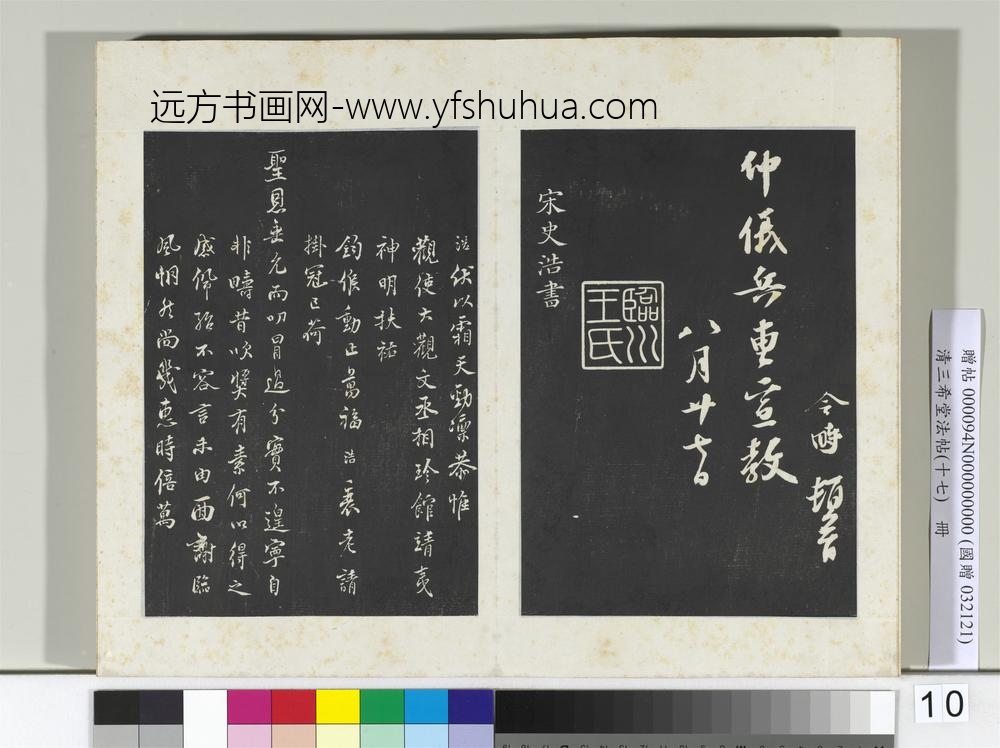 远方书画网-www.yfshuhua.com
令時頓首
仲儀兵曹宣教
八月廿七日
臨川王氏
宋史浩書
浩伏以霜天勁凜恭惟
觀使大觀文丞相珍館靖夷
神明扶祐
鈞候動止萬福浩衰老請
掛冠已荷
聖恩垂允而叨冒過分實不遑寧自
非疇昔吹獎有素何以得之
感佩殆不容言未由面謝臨
風惘然尚幾惠時倍萬
贈帖 0000094N000000000 (國贈 032121)
清三希堂法帖(十七) 冊
10